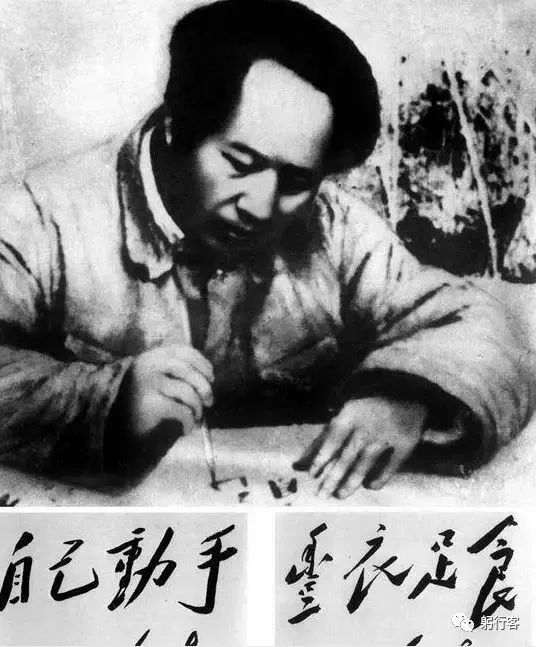 自己動手
豐衣足食
躬行客